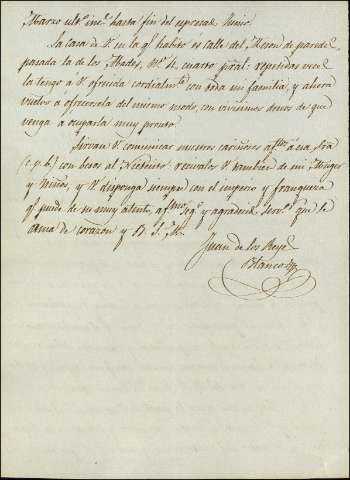 Marzo ult.º inc.e hasta fin del Junio
La casa de V. en la q.e habito es calle del Meson de paredes
pasada la de los Mades, N.º 4. cuarto pral: repetidas veces
la tengo á V. ofrecida cordialm.te con toda mi familia, y ahora
vuelvo á ofrecersela del mismo modo, con vivisimos deseos de que
venga á ocuparla muy pronto.
Sirvase V. comunicar nuestros cariños af.tos á esa Sra
(c. p. b.) con besos al recivalos V. tambien de mi Muger
y Niños, y V. disponga siempre con el imperio y franqueza
q.e puede de su muy atento, af.mo seg.º y agradecido Serv.r que le
ama de corazon y B. S. M.
Juan de los Reyes
Blanco